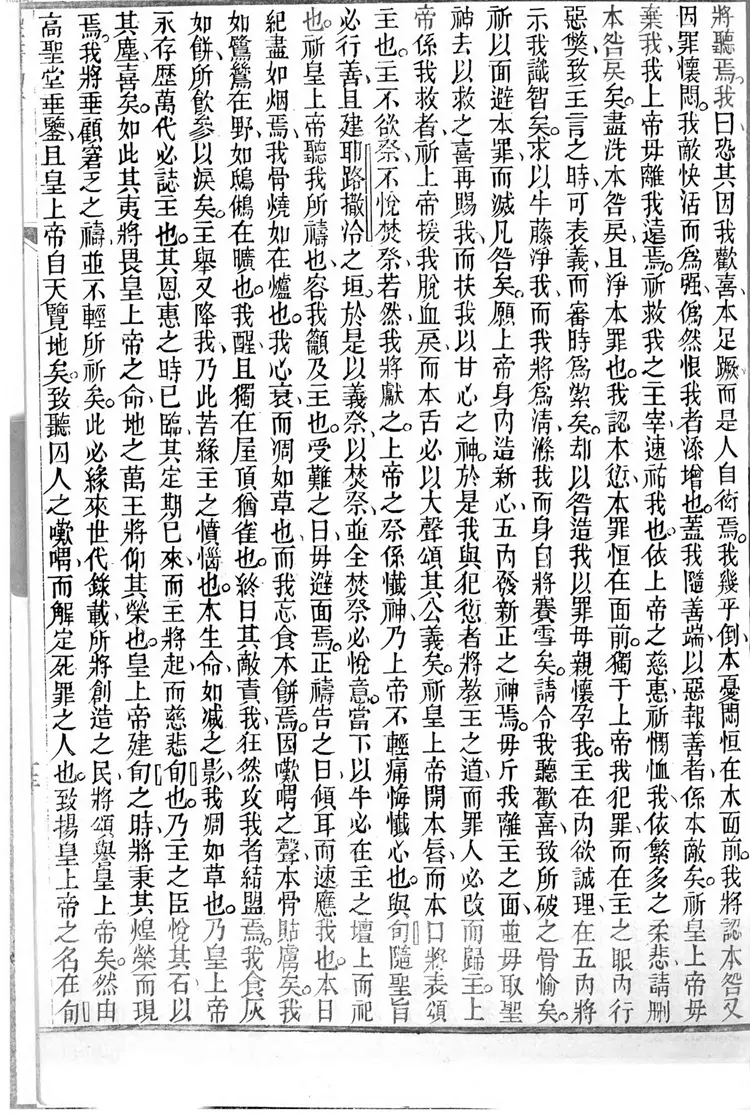 將聽焉。我曰恐其因我歡喜、本足蹶而是人自衒焉。我幾乎倒本憂悶恒在本面前。我將認本咎又
因罪懷悶。我敵快活而爲强、僞然恨我者添增也。蓋我隨善端、以惡報善者、係本敵矣。祈皇上帝毋
棄我、我上帝毋離我遠焉。祈救我之主宰速祐我也。依上帝之慈惠祈憫恤我、依繁多之柔悲請刪
本咎戾矣。盡洗本咎戾且淨本罪也。我認本愆、本罪恒在面前。獨于上帝我犯罪而在主之眼內行
惡獘、致主言之時可表義、而審時爲潔矣。却以咎造我、以罪母親懷孕我。主在內欲誠理、在五內將
示我識智矣。求以牛藤淨我、而我將爲清、滌我而身自將賽雪矣。請令我聽歡喜、致所破之骨愉矣。
祈以面避本罪、而滅凡咎矣。願上帝身內造新心、五內發新正之神焉。毋斥我離主之面、並毋取聖
神去、以救之喜再賜我、而扶我以甘心之神。於是我與犯愆者將教主之道、而罪人必改而歸主。上
帝係我救者、祈上帝援我脫血戾、而本舌必以大聲頌其公義矣。祈皇上帝開本唇、而本口將表頌
主也。主不欲祭、不悅焚祭、若然我將獻之。上帝之祭係懺神、乃上帝不輕痛悔懺心也。與旬隨聖旨
必行善、且建耶路撒冷之垣。於是以義祭、以焚祭、並全焚祭必悅意。當下以牛必在主之壇上而祀
也。祈皇上帝聽我所禱也、容我籲及主也。受難之日毋避面焉。正禱告之日、傾耳而速應我也。本日
紀盡如烟焉、我骨燒如在爐也。我心衰而凋如草也、而我忘食本餅焉。因歎喟之聲、本骨貼膚矣。我
如鷺鶿在野、如鴟鵂在曠也。我醒且獨在屋頂猶雀也。終日其敵責我、狂然攻我者結盟焉。我食灰
如餅、所飲參以淚矣。主舉又降我、乃此苦緣主之憤惱也。本生命如减之影、我凋如草也。乃皇上帝
永存、歷萬代必誌主也。其恩惠之時已臨、其定期已來、而主將起而慈悲旬也。乃主之臣悅其石、以
其塵喜矣。如此其夷將畏皇上帝之命、地之萬王將仰其榮也。皇上帝建旬之時、將秉其煌榮而現
焉。我將垂顧窘乏之禱、並不輕所祈矣。此必緣來世代錄載、所將創造之民將頌譽皇上帝矣。然由
高聖堂垂鑒、且皇上帝自天覽地矣。致聽囚人之歎喟、而解定死罪之人也。致揚皇上帝之名在旬